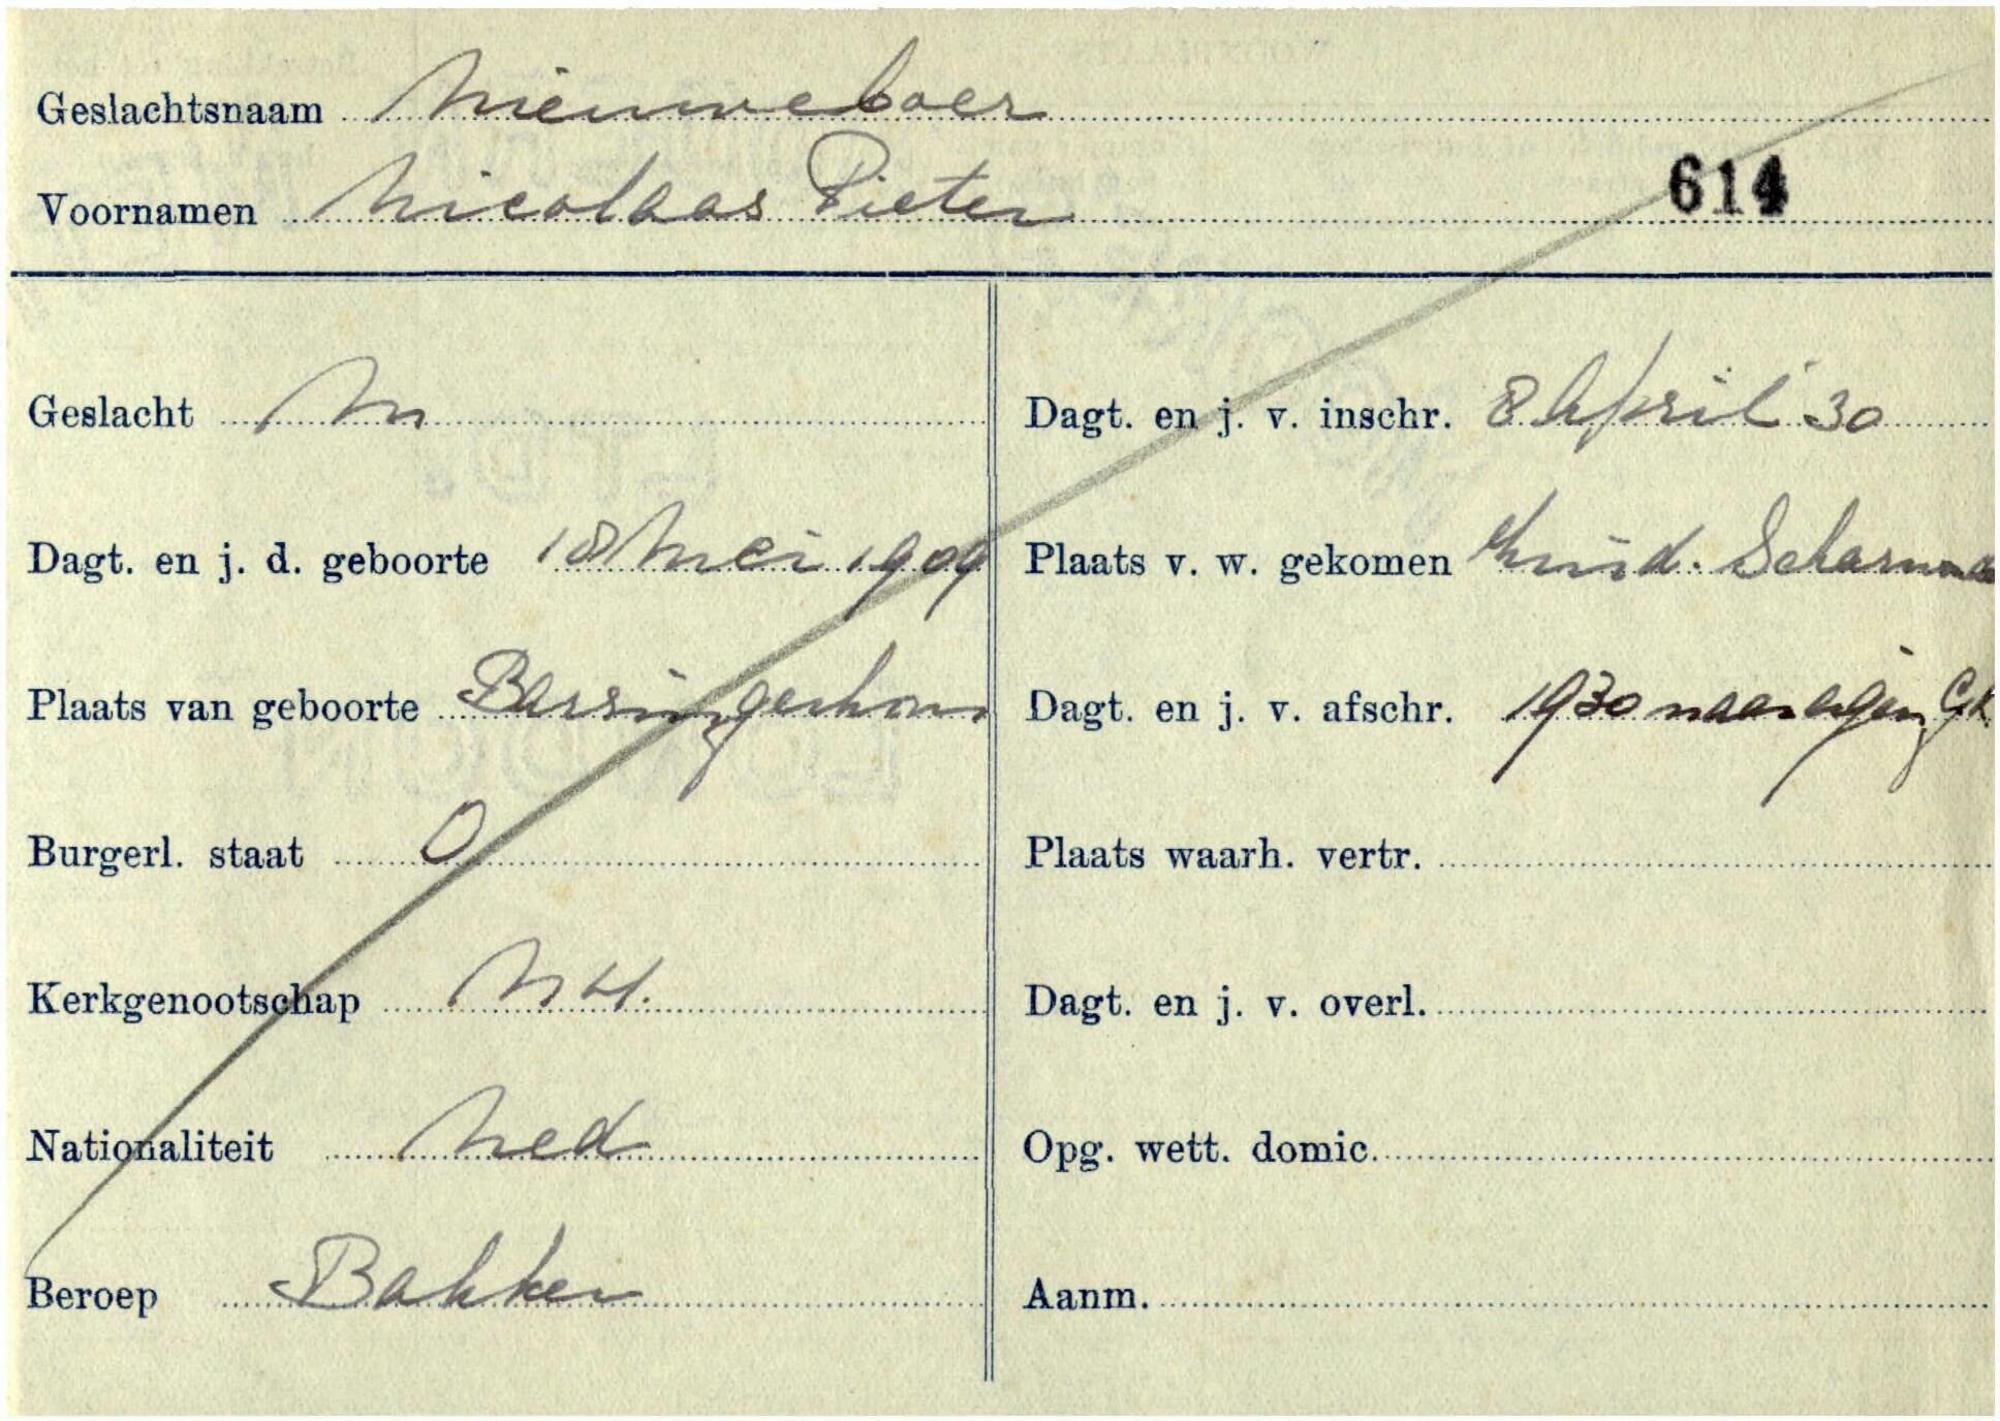 Geslachtsnaam Nieuweboer
Voornamen Nicolaas Pieter 614
Geslacht M
Dagt. en j. d. geboorte 18 Mei 1909
Plaats van geboorte Barsingerhorn
Burgerl. staat O
Kerkgenootschap NH.
Nationaliteit Ned
Beroep Bakker
Dagt. en j. v. inschr. 8 April 30
Plaats v. w. gekomen Zuid. Scharwou
Dagt. en j. v. afschr. 1930 naar eigen GK
Plaats waarh. vertr.
Dagt. en j. v. overl.
Opg. wett. domic.
Aanm.